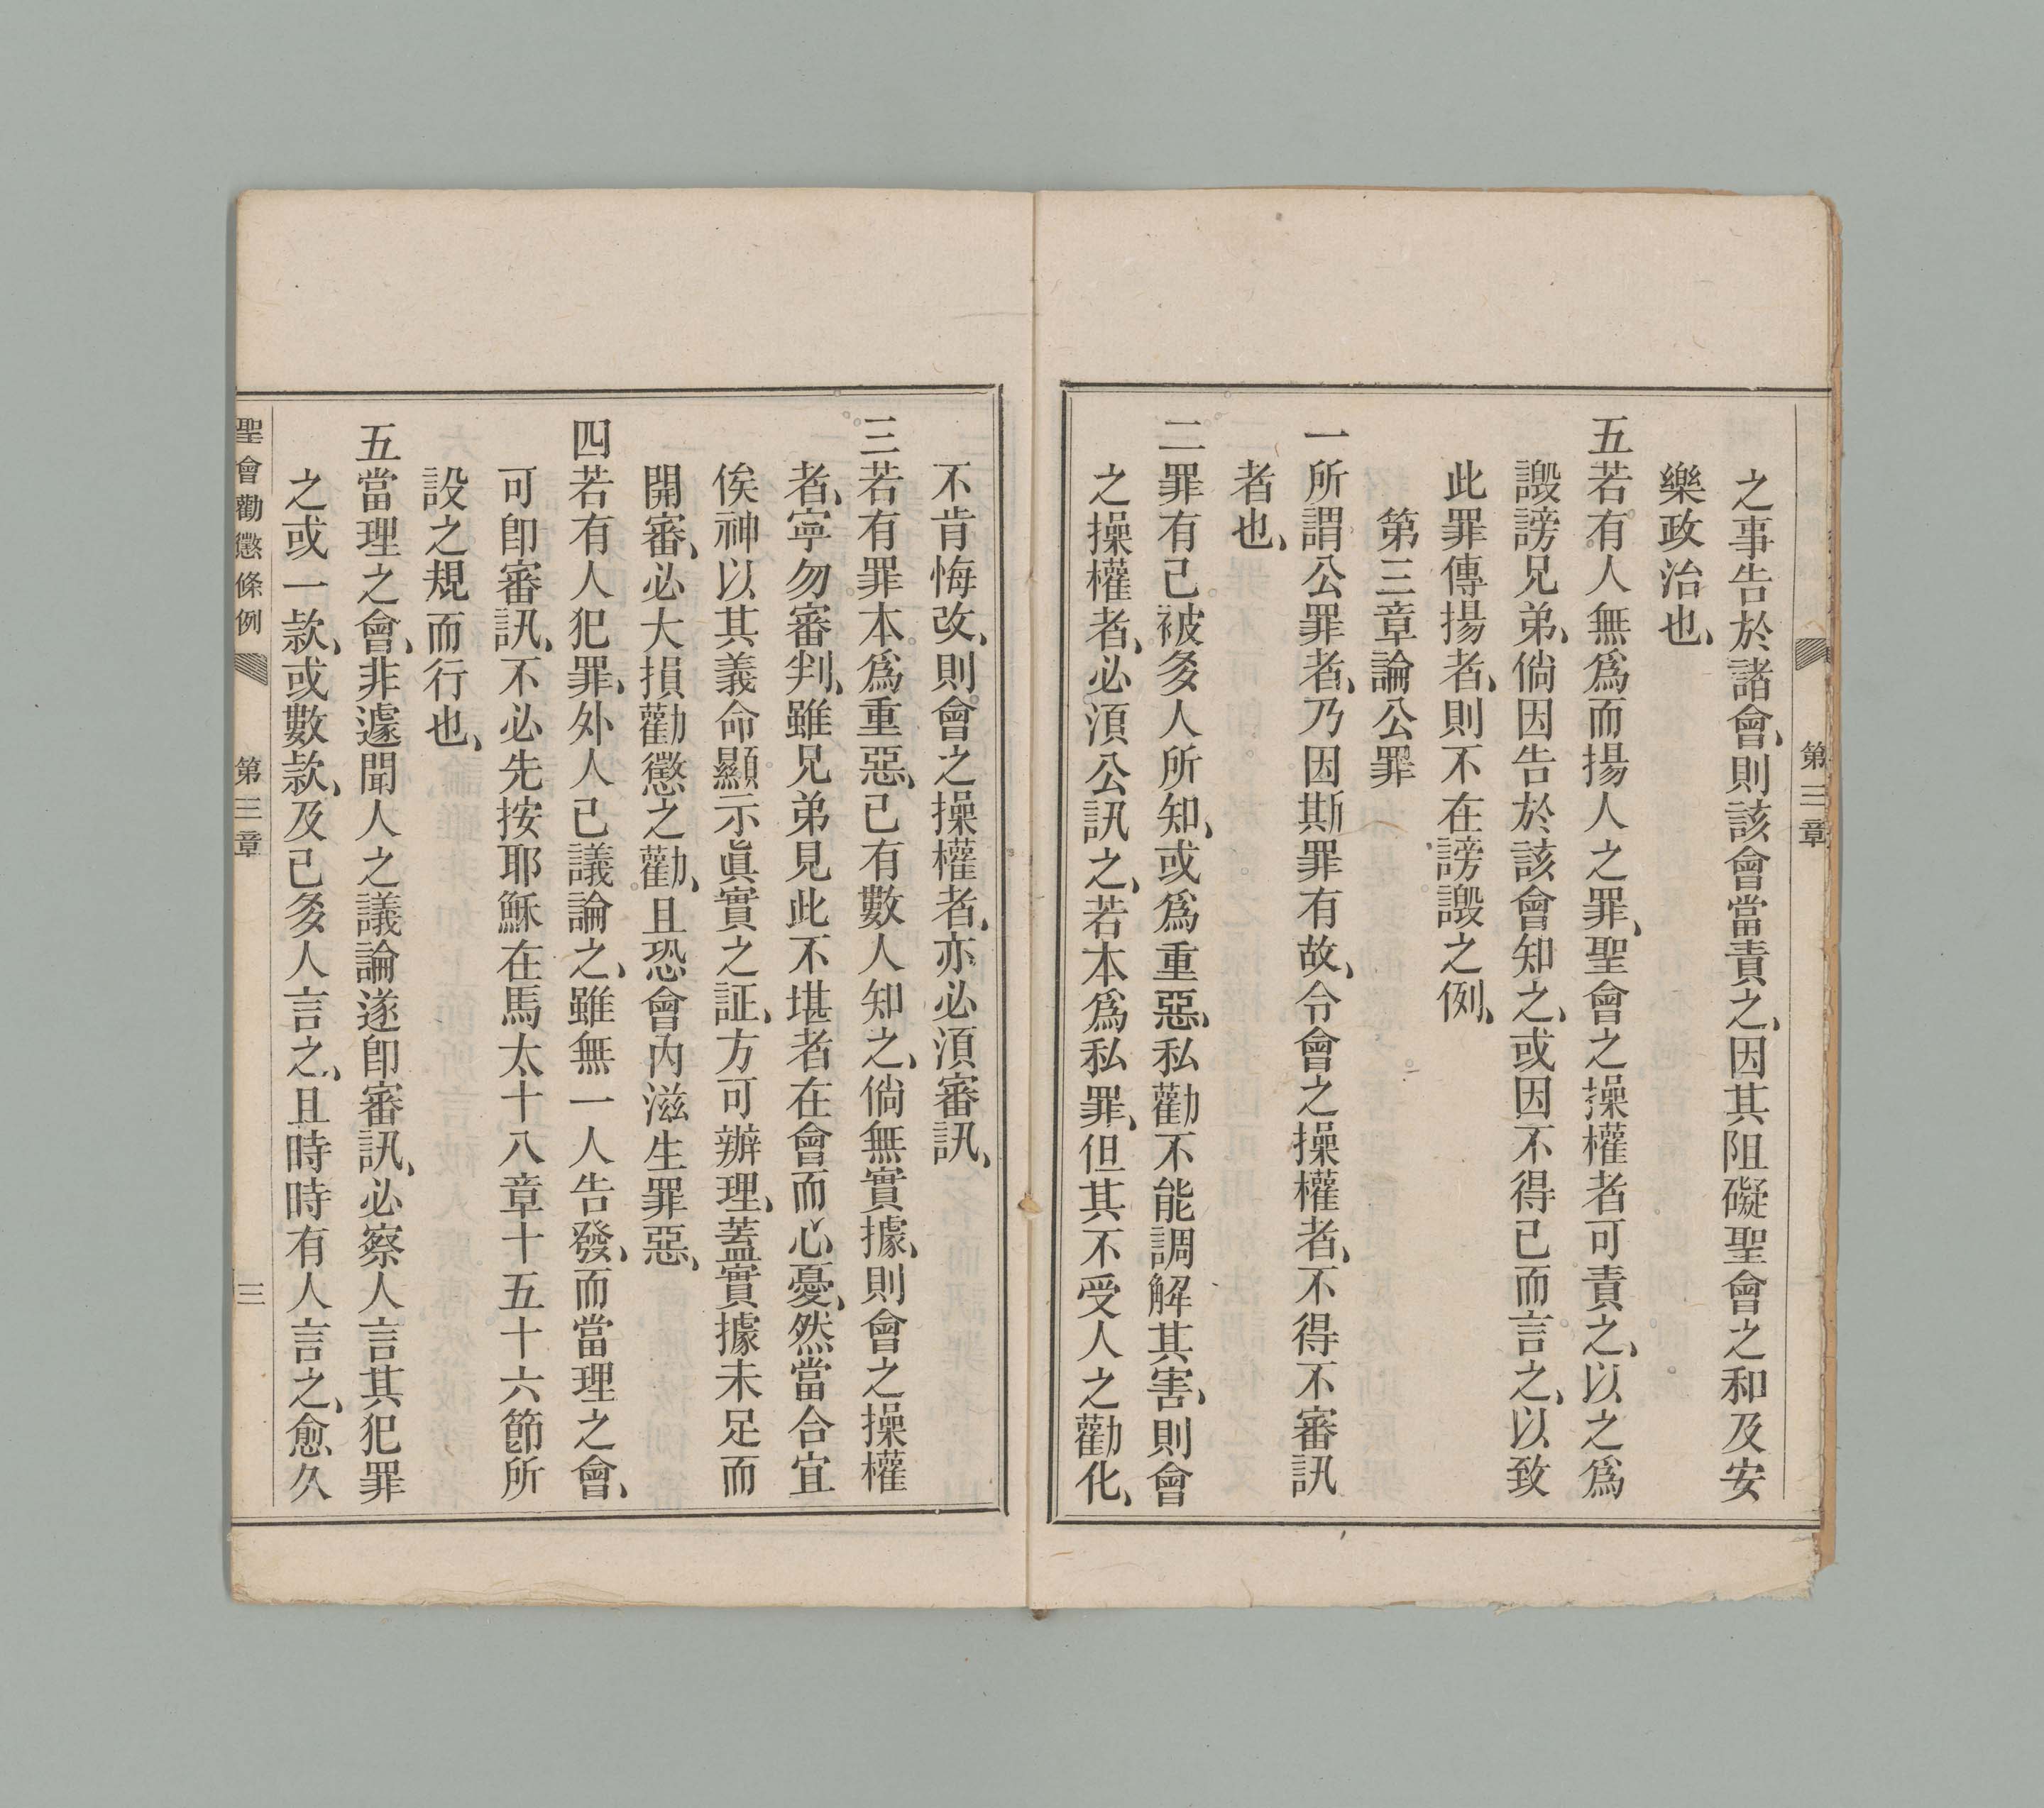 第三章
之事告於諸會、則該會當責之、因其阻礙聖會之和及安
樂政治也、
五若有人無爲而揚人之罪、聖會之操權者可責之、以之爲
譭謗兄弟、倘因告於該會知之、或因不得已而言之、以致
此罪傳揚者、則不在謗譭之例、
第三章論公罪
一所謂公罪者、乃因斯罪有故、令會之操權者、不得不審訊
者也、
二罪有已被多人所知、或爲重惡、私勸不能調解其害、則會
之操權者、必須公訊之、若本爲私罪、但其不受人之勸化、
不肯悔改、則會之操權者、亦必須審訊、
三若有罪本爲重惡、已有數人知之、倘無實據、則會之操權
者、寧勿審判、雖兄弟見此不堪者在會而心憂、然當合宜
俟神以其義命顯示眞實之証、方可辦理、蓋實據未足而
開審、必大損勸懲之勸、且恐會內滋生罪惡、
四若有人犯罪、外人已議論之、雖無一人告發、而當理之會、
可卽審訊、不必先按耶穌在馬太十八章十五十六節所
設之規而行也、
五當理之會、非遽聞人之議論遂卽審訊、必察人言其犯罪
之或一款、或數款、及已多人言之、且時時有人言之、愈久
聖會勸懲條例 第三章 三